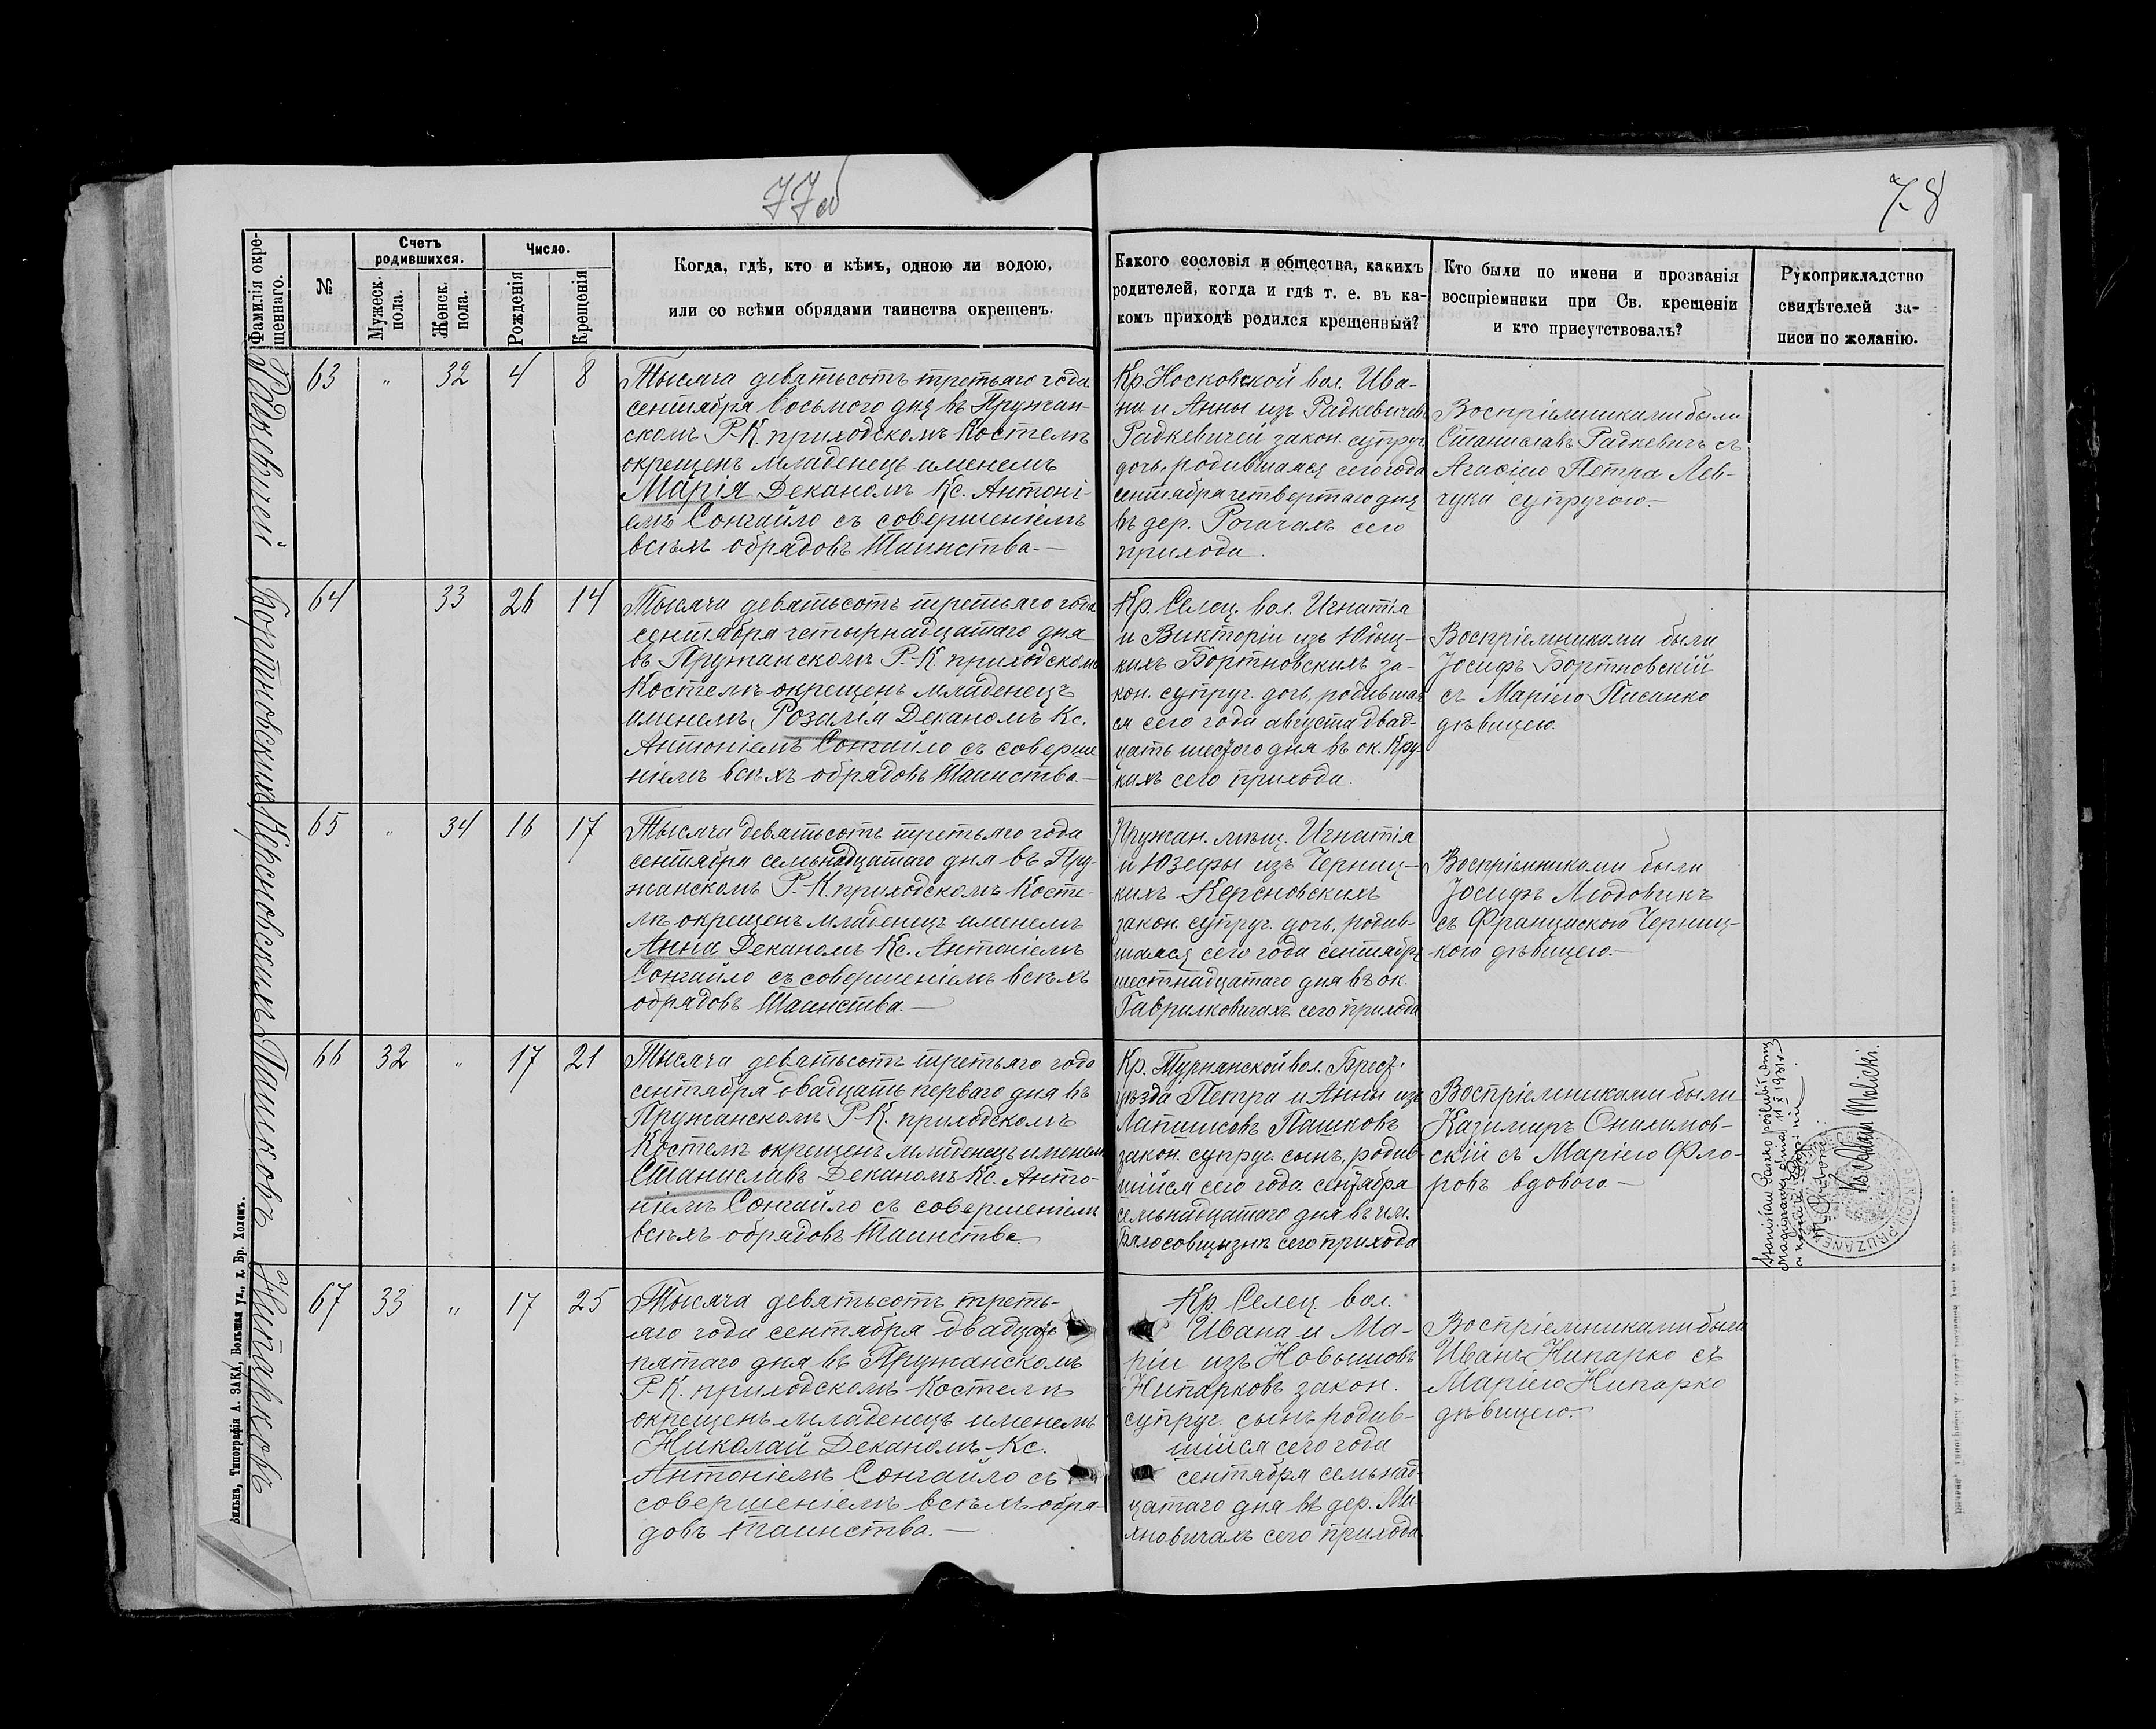 77об
78
Фамилія окре-
щеннаго.
№
Счетъ
родившихся.
Мужеск.
пола.
Женск.
пола.
Число.
Рожденія
Крещенія
Когда, гдѣ, кто и кѣмъ, одною ли водою,
или со всѣми обрядами таинства окрещенъ.
Какого сословія и общества, какихъ
родителей, когда и гдѣ т. е. въ ка-
комъ приходѣ родился крещенный?
Кто были по имени и прозванія
воспріемники при Св. крещеніи
и кто присутствовалъ?
Рукоприкладство
свидѣтелей за-
писи по желанію.
Радкевичей
63 " 32 4 8
Тысяча девятьсотъ третьяго года
сентября восьмого дня въ Пружан-
скомъ Р-К. приходскомъ Костелѣ
окрещенъ младенецъ именемъ
Марія Деканомъ Кс. Антоні-
емъ Сонгайло съ совершеніемъ
всѣхъ обрядовъ Таинства.—
Кр. Носковской вол. Ива-
на и Анны изъ Радкевичевъ
Радкевичей закон. супруг.
дочь, родившаяся сего года
сентября четвертаго дня
въ дер. Рогачахъ сего
прихода.
Воспріемниками были
Станиславъ Радкевичъ съ
Агасіею Петра Лев-
чука супругою.—
Бортновскихъ
64 33 26 14
Тысяча девятьсотъ третьяго года
сентября четырнадцатаго дня
въ Пружанскомъ Р.-К. приходскомъ
Костелѣ окрещенъ младенецъ
именемъ Розалія Деканомъ Кс.
Антоніемъ Сонгайло съ соверше
ніемъ всѣхъ обрядовъ Таинства.—
Кр. Селец. вол. Игнатія
и Викторіи изъ
кихъ Бортновскихъ за-
кон. супруг. дочь, родившая
ся сего года августа двад-
цать шестого дня въ ок. Кру-
кихъ сего прихода.
Воспріемниками были
Іосифъ Бортновскій
съ Маріею Писанко
дѣвицею.
Керсновскихъ
65 " 34 16 17
Тысяча девятьсотъ третьяго года
сентября семьнадцатаго дня въ Пру-
жанскомъ Р.-К. приходскомъ Косте-
лѣ окрещенъ младенецъ именемъ
Анна Деканомъ Кс. Антоніемъ
Сонгайло съ совершеніемъ всѣхъ
обрядовъ Таинства.—
Пружан. мѣщ. Игнатія
и Юзефы изъ Черниц-
кихъ Керсновскихъ
закон. супруг. дочь, родив-
шаяся сего года сентября
шестнадцатаго дня въ ок.
Гаврилковичахъ сего прихода
Воспріемниками были
Іосифъ Людовикъ
съ Францискою Черниц-
кою дѣвицею.—
Пашковъ
66 32 " 17 21
Тысяча девятьсотъ третьяго года
сентября двадцать перваго дня въ
Пружанскомъ Р-К. приходскомъ
Костелѣ окрещенъ младенецъ именемъ
Станиславъ Деканомъ Кс. Анто-
ніемъ Сонгайло съ совершеніемъ
всѣхъ обрядовъ Таинства.
Кр. Турнянской вол. Брест.
уѣзда Петра и Анны изъ
Лапшисовъ Пашковъ
закон. супруг. сынъ, родив-
шійся сего года сентября
семьнадцатаго дня въ им.
сего прихода
Воспріемниками были
Казимиръ Онихимов-
скій съ Маріею Фло-
ровъ вдовою.—
Stanisław Paszko poślubił Annę
dnia 11 X 1931 r.
w kościele
Ks. Adam Malicki.
Нипарковъ
67 33 " 17 25
Тысяча девятьсотъ треть-
яго года сентября двадцать
пятаго дня въ Пружанскомъ
Р-К. приходскомъ Костелѣ
окрещенъ младенецъ именемъ
Николай Деканомъ Кс.
Антоніемъ Сонгайло съ
совершеніемъ всѣхъ обря-
довъ Таинства.—
Кр. Селец. вол.
Ивана и Ма-
ріи изъ Новошовъ
Нипарковъ закон.
супруг. сынъ родив-
шійся сего года
сентября семьнад-
цатаго дня въ дер. Ми-
хновичахъ сего прихода
Воспріемниками были
Иванъ Нипарко съ
Маріею Нипарко
дѣвицею.
Вильна, Типографія А. ЗАКА, Большая ул., д. Бр. Холемъ.